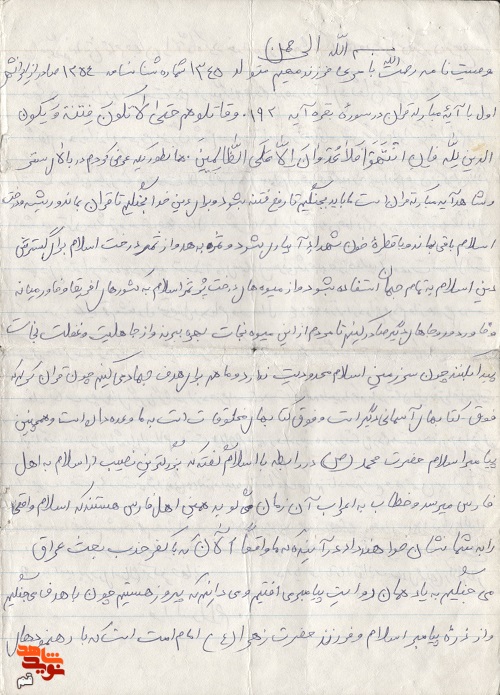 بسم الله الرحمن
وصیت نامه رحمت الله یاسری فرزند متولد ۱۳۴۵ شماره شناسنامه ۱۳۵۴ صادره از
اول با آیۀ مبارکه قران در سورۀ بقره آیه ۱۹۲ . وقاتلوهم حتی لا تکون فتنة و یکون
الدین لله فان انتهوا فلا عدوان الا علی الظالمین . همانطوریکه عرض کردم در بالای سطر
و شاهد آیه مبارکه قران است ما باید بجنگیم تا رفع فتنه بشود و برای دین خدا بجنگیم تا قران بماند و ریشه درخت
اسلام باقی بماند و با قطرۀ خون شهداء آبیاری بشود و ثمره بدهد و از ثمر درخت اسلام برای گسترش
دین اسلام به تمام جهان استفاده بشود و از میوه های درخت پرثمر اسلام به کشورهای افریقا و خاورمیانه
و خاور دور و جاهای دیگر صادر کنیم تا مردم از این میوه نجات بهره ببرند و از جاهلیت و غفلت نجات
پیدا کنند چون سرزمین اسلام محدودیت ندارد و ما هم برای هدف جهاد می کنیم چون قران کریم که
فوق کتابهای آسمانی دیگر است و فوق کتابهای مخلوقات است به ما وعده داده است و همچنین
پیامبر اسلام حضرت محمد (ص) در رابطه با اسلام گفته که بزرگترین نصیب از اسلام به اهل
فارس میرسد و خطاب به اعراب آن زمان می گوید همین اهل فارس هستند که اسلام واقعی
را به شما نشان خواهند داد در آینده که ما واقعاً الآن که با کفر حزب بعث عراق
می جنگیم به یاد همان روایت پیامبر می افتیم و می دانیم که پیروز هستیم چون با هدف می جنگیم
و از ذرۀ پیامبر اسلام و فرزند حضرت زهرا (ع) امام امت است که با رهنمودهای
شاهد
نوید
قم